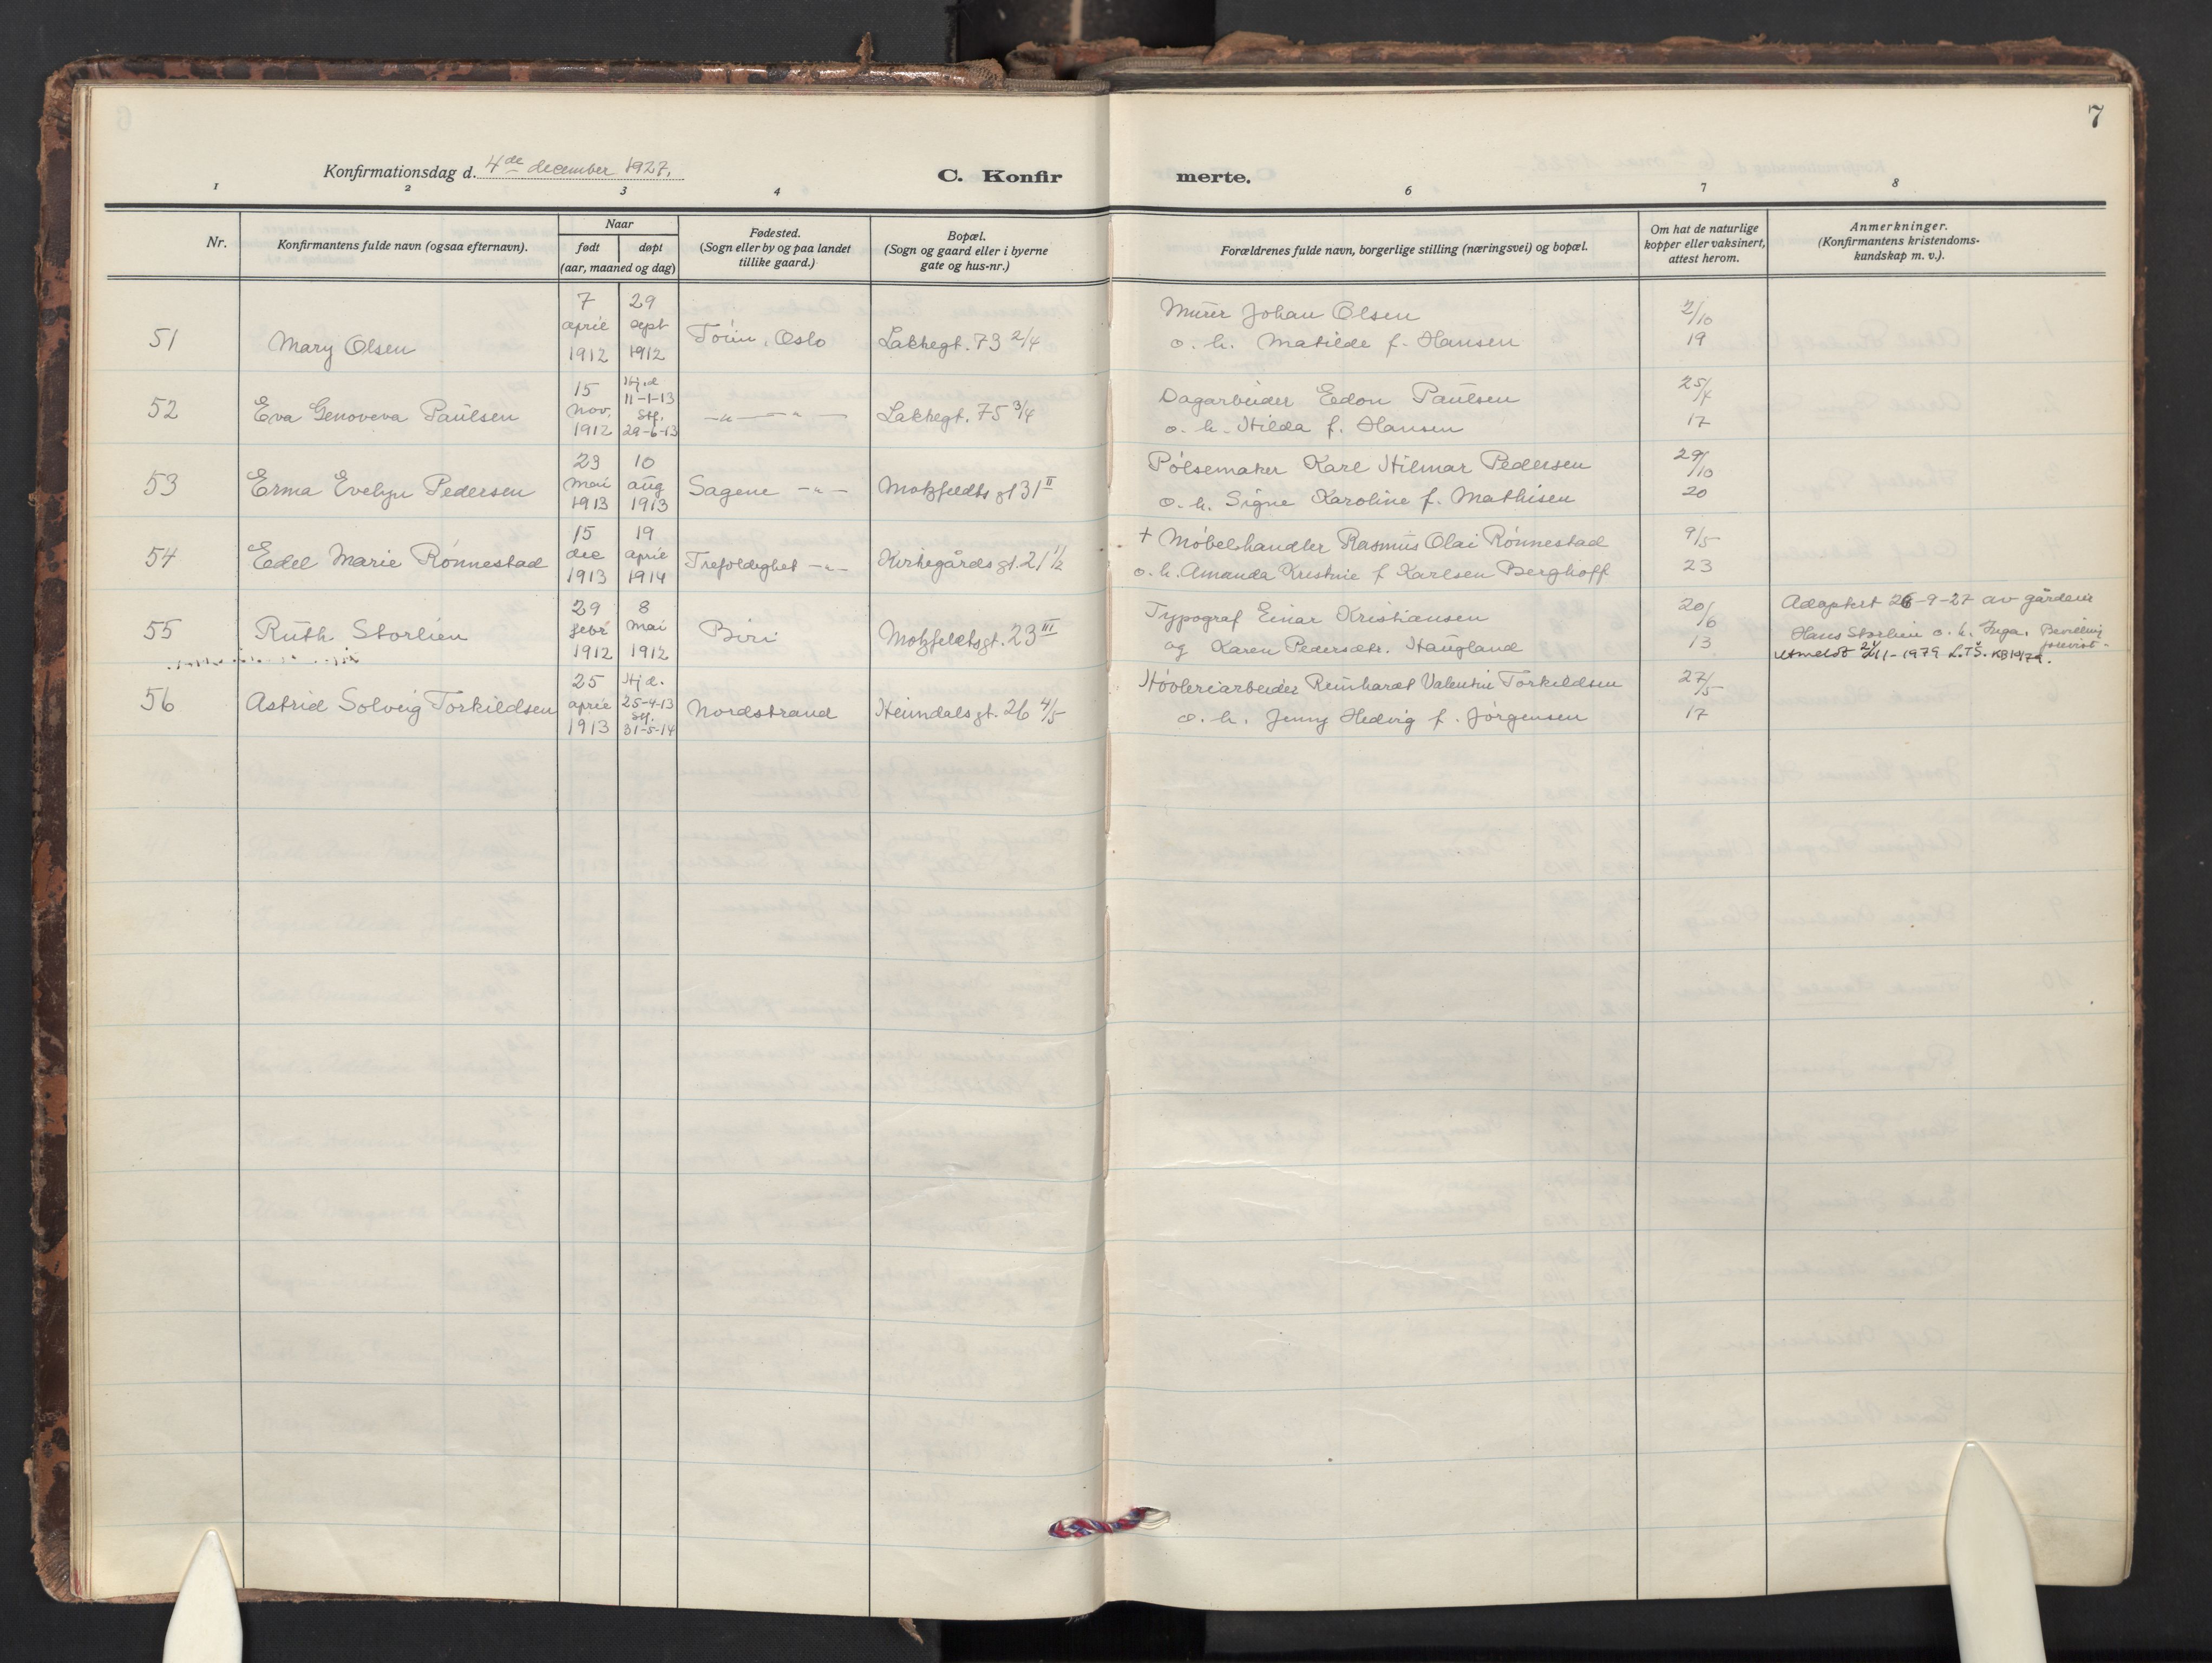 7
Konfirmationsdag d. 4de december 1927.
C. Konfirmerte.
1 2 3 4 6 7 8
Nr.
Konfirmantens fulde navn (ogsaa efternavn).
Naar
født
døpt
(aar, maaned og dag)
Fødested.
(Sogn eller by og paa landet
tillike gaard.)
Bopæl.
(Sogn og gaard eller i byerne
gate og hus-nr.)
Forældrenes fulde navn, borgerlige stilling (næringsvei) og bopæl.
Om hat de naturlige
kopper eller vaksinert,
attest herom.
Anmerkninger.
(Konfirmantens kristendoms-
kundskap m. v.).
51
Mary Olsen
7
april
1912
29
sept
1912
Tøien, Oslo
Lakkegt. 73 2/4
Murer Johan Olsen
o. h. Matilde f. Hansen
2/10
19
52
Eva Genoveva Paulsen
15
nov.
1912
Hj.d
11-1-13
Stf.
29-6-13
-"- -"-
Lakkegt. 75 3/4
Dagarbeider Edon Paulsen
o. h. Hilda f. Hansen
25/4
17
53
Erma Evelyn Pedersen
23
mai
1913
10
aug
1913
Sagene -"-
Motzfeldts gt 31 II
Pølsemaker Karl Hilmar Pedersen
o. h. Signe Karoline f. Mathisen
29/10
20
54
Edel Marie Rønnestad
15
dec
1913
19
april
1914
Trefoldighet -"-
Kirkegårdsgt. 21 1/2
+ Møbelhandler Rasmus Olai Rønnestad
o. h. Amanda Kristine f Karlsen Berghoff
9/5
23
55
Ruth Storlien
29
febr
1912
8
mai
1912
Biri
Motzfeldtsgt. 23 III
Typograf Einar Kristiansen
og Karen Pedersdtr. Haugland
20/6
13
Adoptert 26-9-27 av gårdeier
Hans Storlien o. h. Inga. Bevilling
forevist.
Utmeldt 2/11-1979 L.TŠ. KB 10/79.
56
Astrid Solveig Torkildsen
25
april
1913
Hj d.
25-4-13
Stf.
31-5-14
Nordstrand
Heimdalsgt. 26 4/5
Høvleriarbeider Reinhardt Valentin Torkildsen
o. h. Jenny Hedvig f. Jørgensen
27/5
17